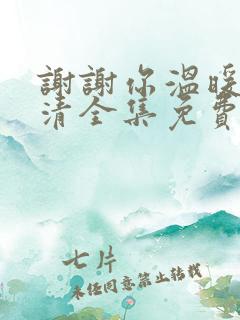 謝謝你溫暖
清全集免費
七片
未經同意禁止轉載